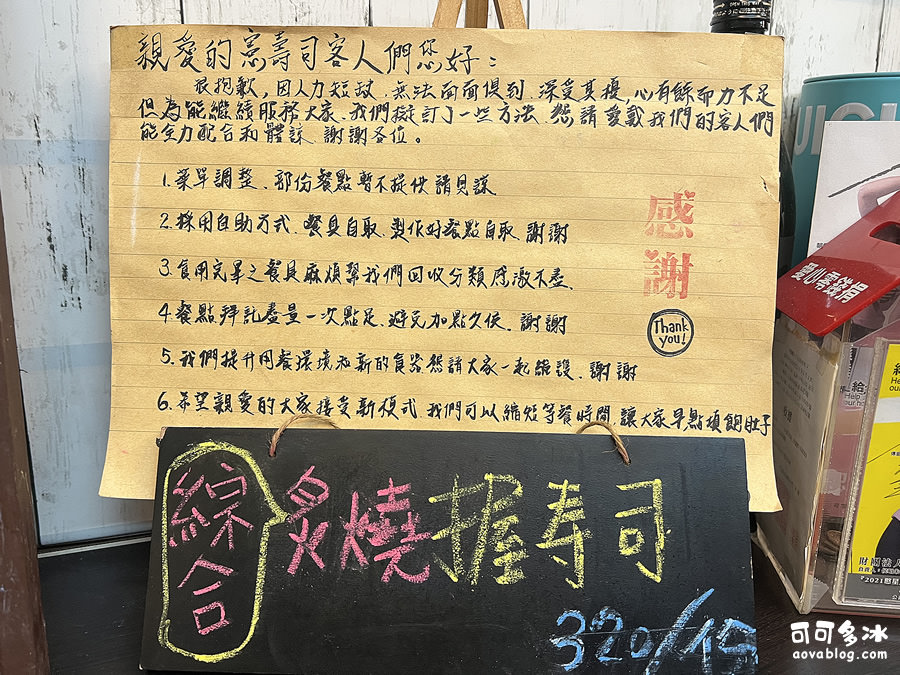 親愛的憲壽司客人們您好：
很抱歉，因人力短缺，無法面面俱到，深受其擾，心有餘而力不足
但為能繼續服務大家，我們擬訂了一些方法，懇請愛戴我們的客人們
能全力配合和體諒，謝謝各位。
1.菜單調整、部份餐點暫不提供請見諒
2.採用自助方式、餐具自取、製作好餐點自取、謝謝
3.食用完畢之餐具麻煩幫我們回收分類感激不盡.
4.餐點拜託盡量一次點足、避免加點久侯、謝謝
5.我們提升用餐環境和新的食器懇請大家一起維護、謝謝
6.希望親愛的大家接受新模式，我們可以縮短等餐時間，讓大家早點填飽肚子
感謝
Thank you!
綜合
炙燒握壽司
320/15
愛心零錢捐
財團法人
2021
可可多冰
aovablog.com